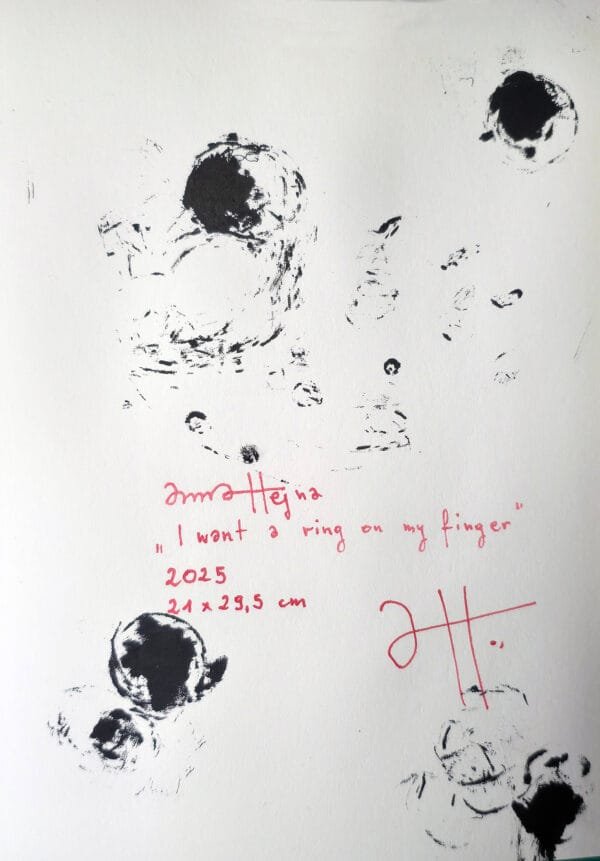 anna Hejna
„I want a ring on my finger"
2025
21 x 29,5 cm
aH.